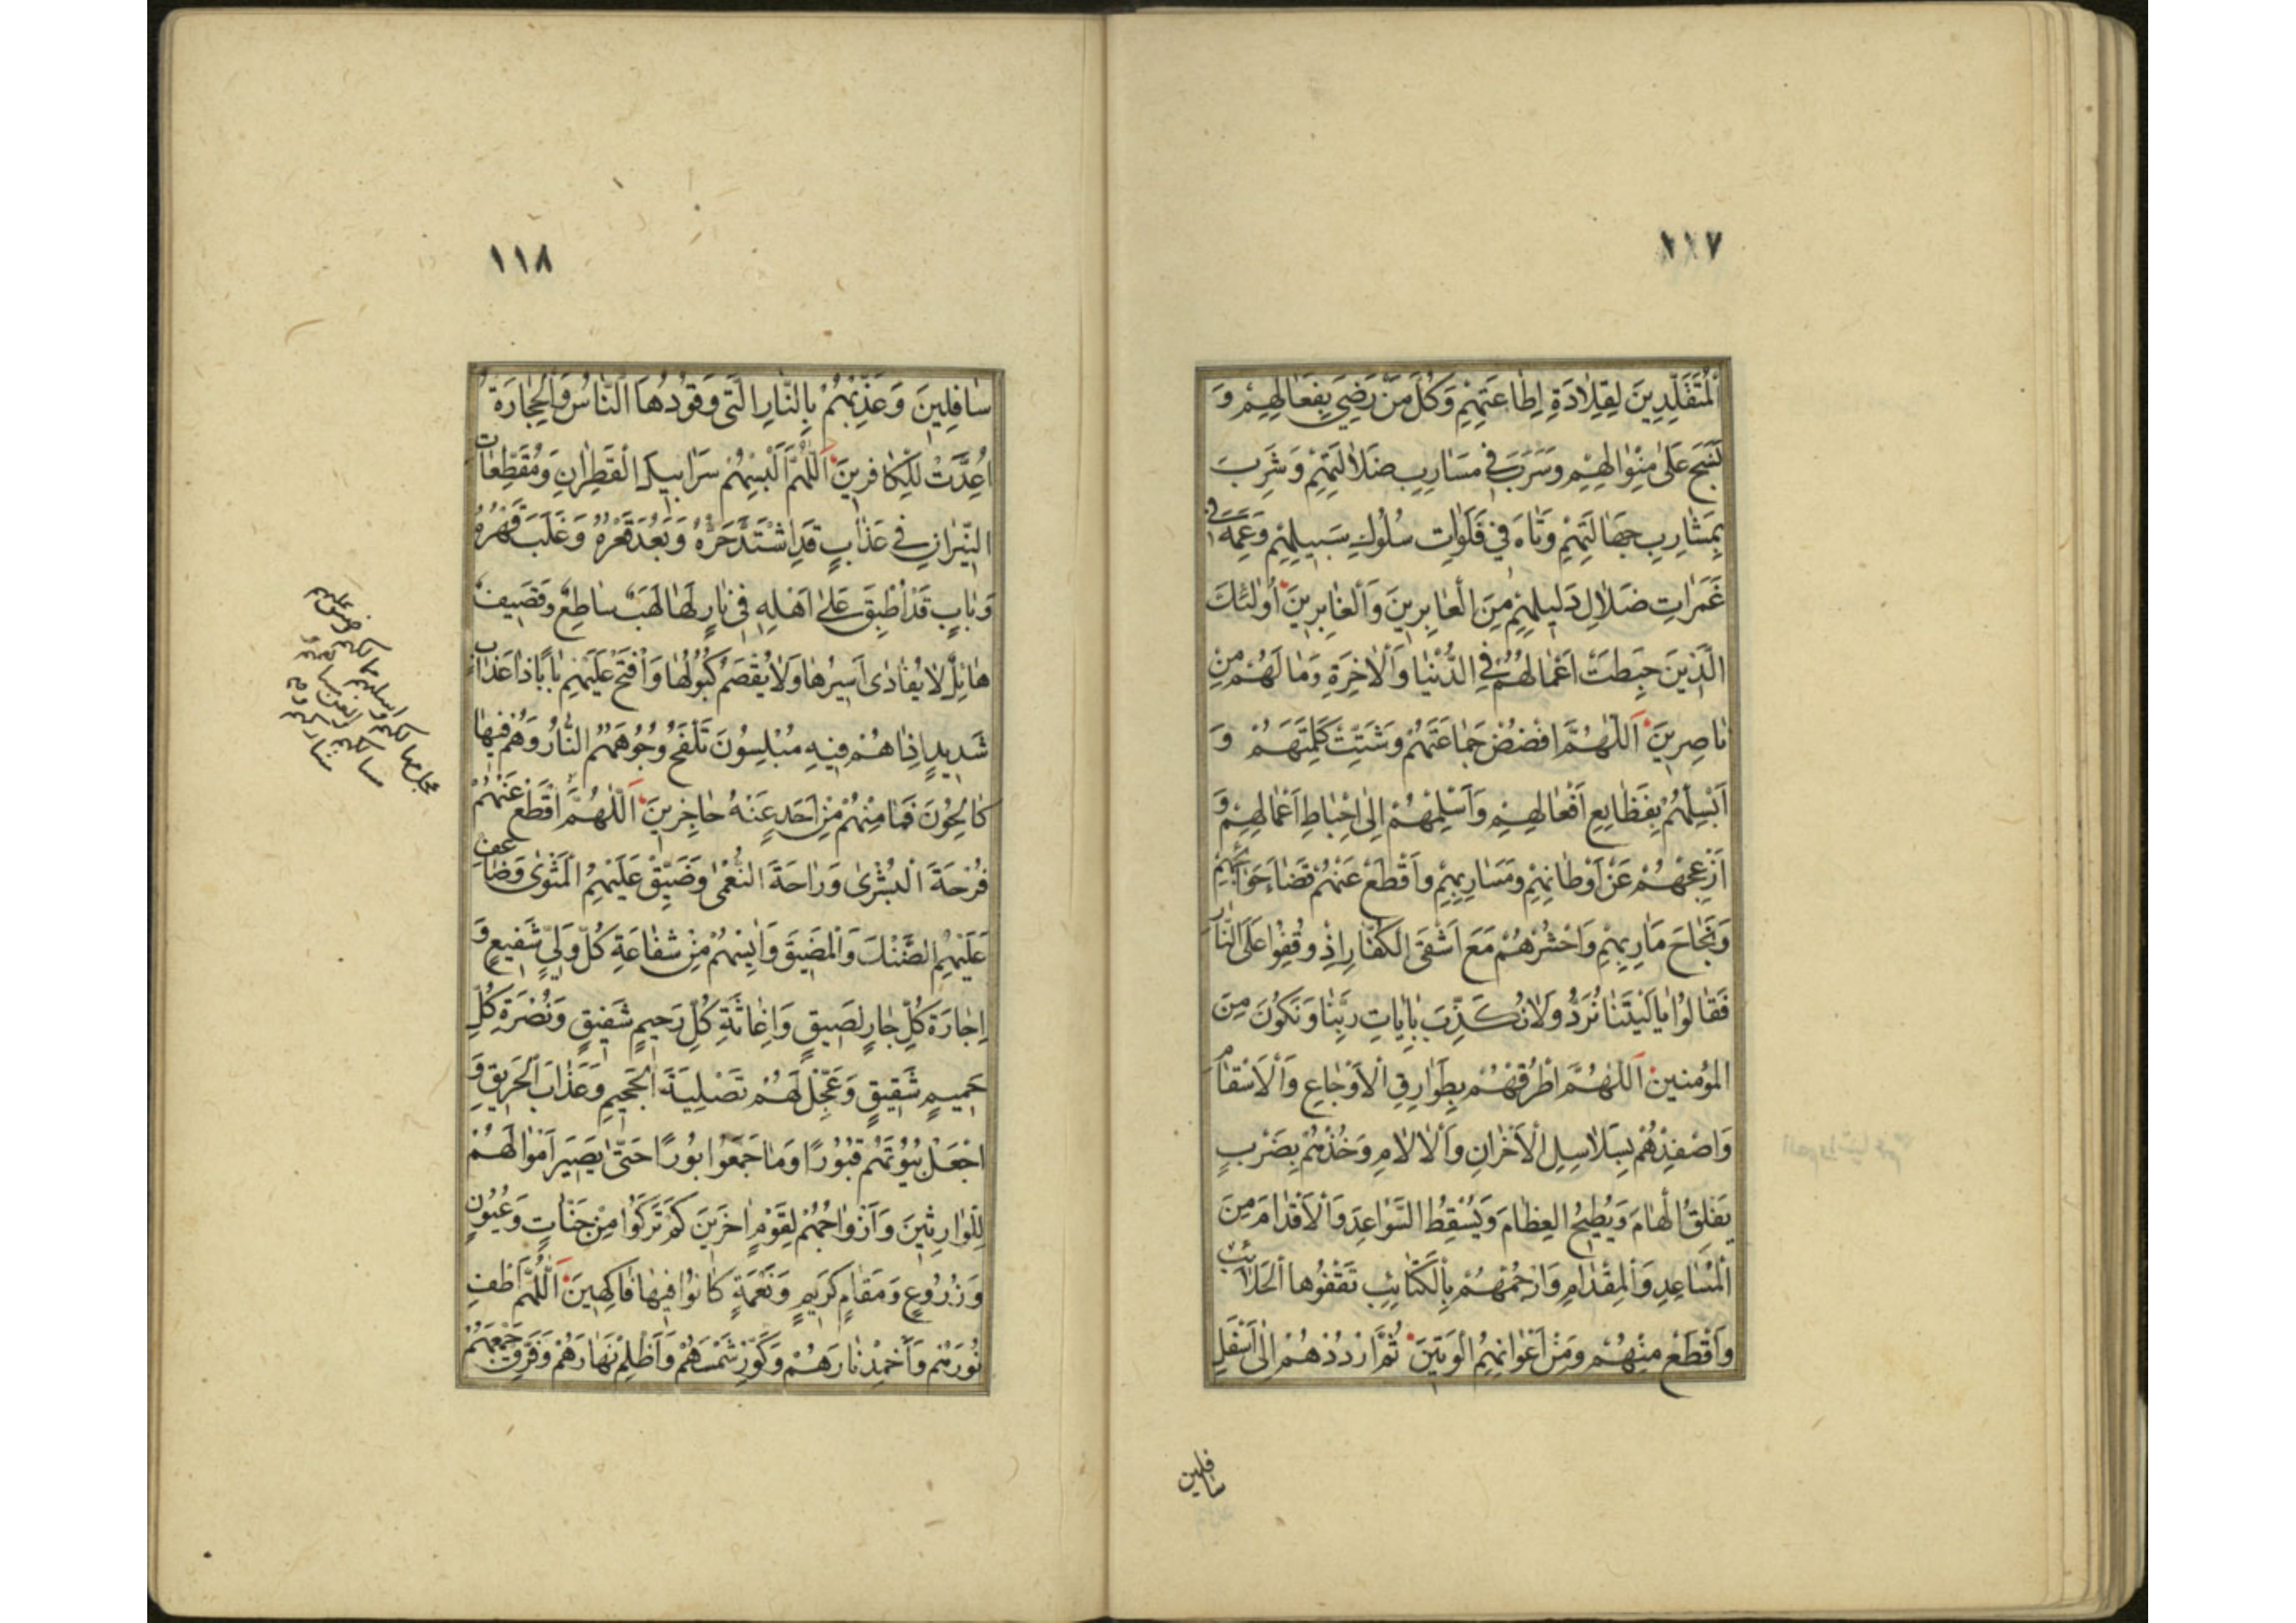 ١١٧
اَلْمُتَقَلِّدِينَ لِقِلَادَةِ إِطَاعَتِهِمْ وَكُلَّ مَنْ رَضِيَ بِفِعَالِهِمْ وَ
نَسَجَ عَلَى مِنْوَالِهِمْ وَسَرَبَ فِي مَسَارِبِ ضَلَالَتِهِمْ وَشَرِبَ
بِمَشَارِبِ جَهَالَتِهِمْ وَتَاهَ فِي فَلَوَاتِ سُلُوكِ سَبِيلِهِمْ وَعَمَهَ فِي
غَمَرَاتِ ضَلَالِ دَلِيلِهِمْ مِنَ الْعَابِرِينَ وَالْغَابِرِينَ أُولٰئِكَ
الَّذِينَ حَبِطَتْ أَعْمَالُهُمْ فِي الدُّنْيَا وَالْاٰخِرَةِ وَمَا لَهُمْ مِنْ
نَاصِرِينَ اَللّٰهُمَّ افْضُضْ جَمَاعَتَهُمْ وَشَتِّتْ كَلِمَتَهُمْ وَ
اَبْسِلْهُمْ بِفَظَايِعِ اَفْعَالِهِمْ وَاَسْلِمْهُمْ إِلَى اِحْبَاطِ اَعْمَالِهِمْ وَ
اَزْعِجْهُمْ عَنْ اَوْطَانِهِمْ وَمَسَارِبِهِمْ وَاقْطَعْ عَنْهُمْ قَضَاءَ حَوَائِجِهِمْ
وَنَجَاحَ مَاٰرِبِهِمْ وَاحْشُرْهُمْ مَعَ اَشْقَى الْكُفَّارِ اِذْ وُقِفُوا عَلَى النَّارِ
فَقَالُوا يَا لَيْتَنَا نُرَدُّ وَلَا نُكَذِّبَ بِاٰيَاتِ رَبِّنَا وَنَكُونَ مِنَ
الْمُؤْمِنِينَ اَللّٰهُمَّ اطْرُقْهُمْ بِطَوَارِقِ الْاَوْجَاعِ وَالْاَسْقَامِ
وَاصْفِدْهُمْ بِسَلَاسِلِ الْاَحْزَانِ وَالْاٰلَامِ وَخُذْهُمْ بِضَرْبٍ
يَفْلِقُ الْهَامَ وَيُطِيحُ الْعِظَامَ وَيُسْقِطُ السَّوَاعِدَ وَالْاَقْدَامَ مِنَ
الْمُسَاعِدِ وَالْمِقْدَامِ وَارْجُمْهُمْ بِالْكَتَائِبِ تَقْفُوهَا الْحَلَائِبُ
وَاقْطَعْ مِنْهُمْ وَمِنْ اَعْوَانِهِمُ الْوَتِينَ ثُمَّ ارْدُدْهُمْ اِلَى اَسْفَلِ
سافلين
١١٨
سَافِلِينَ وَعَذِّبْهُمْ بِالنَّارِ الَّتِي وَقُودُهَا النَّاسُ وَالْحِجَارَةُ
اُعِدَّتْ لِلْكَافِرِينَ اَللّٰهُمَّ اَلْبِسْهُمْ سَرَابِيلَ الْقَطِرَانِ وَمُقَطَّعَاتِ
النِّيرَانِ فِي عَذَابٍ قَدِ اشْتَدَّ حَرُّهُ وَبَعُدَ قَعْرُهُ وَغَلَبَ قَهْرُهُ
وَبَابٍ قَدْ اُطْبِقَ عَلَى اَهْلِهِ فِي نَارٍ لَهَا لَهَبٌ سَاطِعٌ وَقَصِيفٌ
هَائِلٌ لَا يُفَادَى اَسِيرُهَا وَلَا يُقْصَمُ كُبُولُهَا وَافْتَحْ عَلَيْهِمْ بَابًا ذَا عَذَابٍ
شَدِيدٍ اِذَا هُمْ فِيهِ مُبْلِسُونَ تَلْفَحُ وُجُوهَهُمُ النَّارُ وَهُمْ فِيهَا
كَالِحُونَ فَمَا مِنْهُمْ مِنْ اَحَدٍ عَنْهُ حَاجِزِينَ اَللّٰهُمَّ اقْطَعْ عَنْهُمْ
فُرْحَةَ الْبُشْرَى وَرَاحَةَ النُّعْمَى وَضَيِّقْ عَلَيْهِمُ الْمَثْوَى وَضَاعِفْ
عَلَيْهِمُ الضَّنْكَ وَالْمَضِيقَ وَاٰيِسْهُمْ مِنْ شَفَاعَةِ كُلِّ وَلِيٍّ شَفِيعٍ وَ
اِجَارَةِ كُلِّ جَارٍ لَصِيقٍ وَاِغَاثَةِ كُلِّ رَحِيمٍ شَفِيقٍ وَنُصْرَةِ كُلِّ
حَمِيمٍ شَقِيقٍ وَعَجِّلْ لَهُمْ تَصْلِيَةَ الْجَحِيمِ وَعَذَابَ الْحَرِيقِ وَ
اجْعَلْ بُيُوتَهُمْ قُبُورًا وَمَا جَمَعُوا بُورًا حَتَّى يَصِيرَ اَمْوَالُهُمْ
لِلْوَارِثِينَ وَاَزْوَاجُهُمْ لِقَوْمٍ اٰخَرِينَ كَمْ تَرَكُوا مِنْ جَنَّاتٍ وَعُيُونٍ
وَزُرُوعٍ وَمَقَامٍ كَرِيمٍ وَنَعْمَةٍ كَانُوا فِيهَا فَاكِهِينَ اَللّٰهُمَّ اَطْفِ
نُورَهُمْ وَاَخْمِدْ نَارَهُمْ وَكَوِّرْ شَمْسَهُمْ وَاَظْلِمْ نَهَارَهُمْ وَفَرِّقْ جَمْعَهُمْ